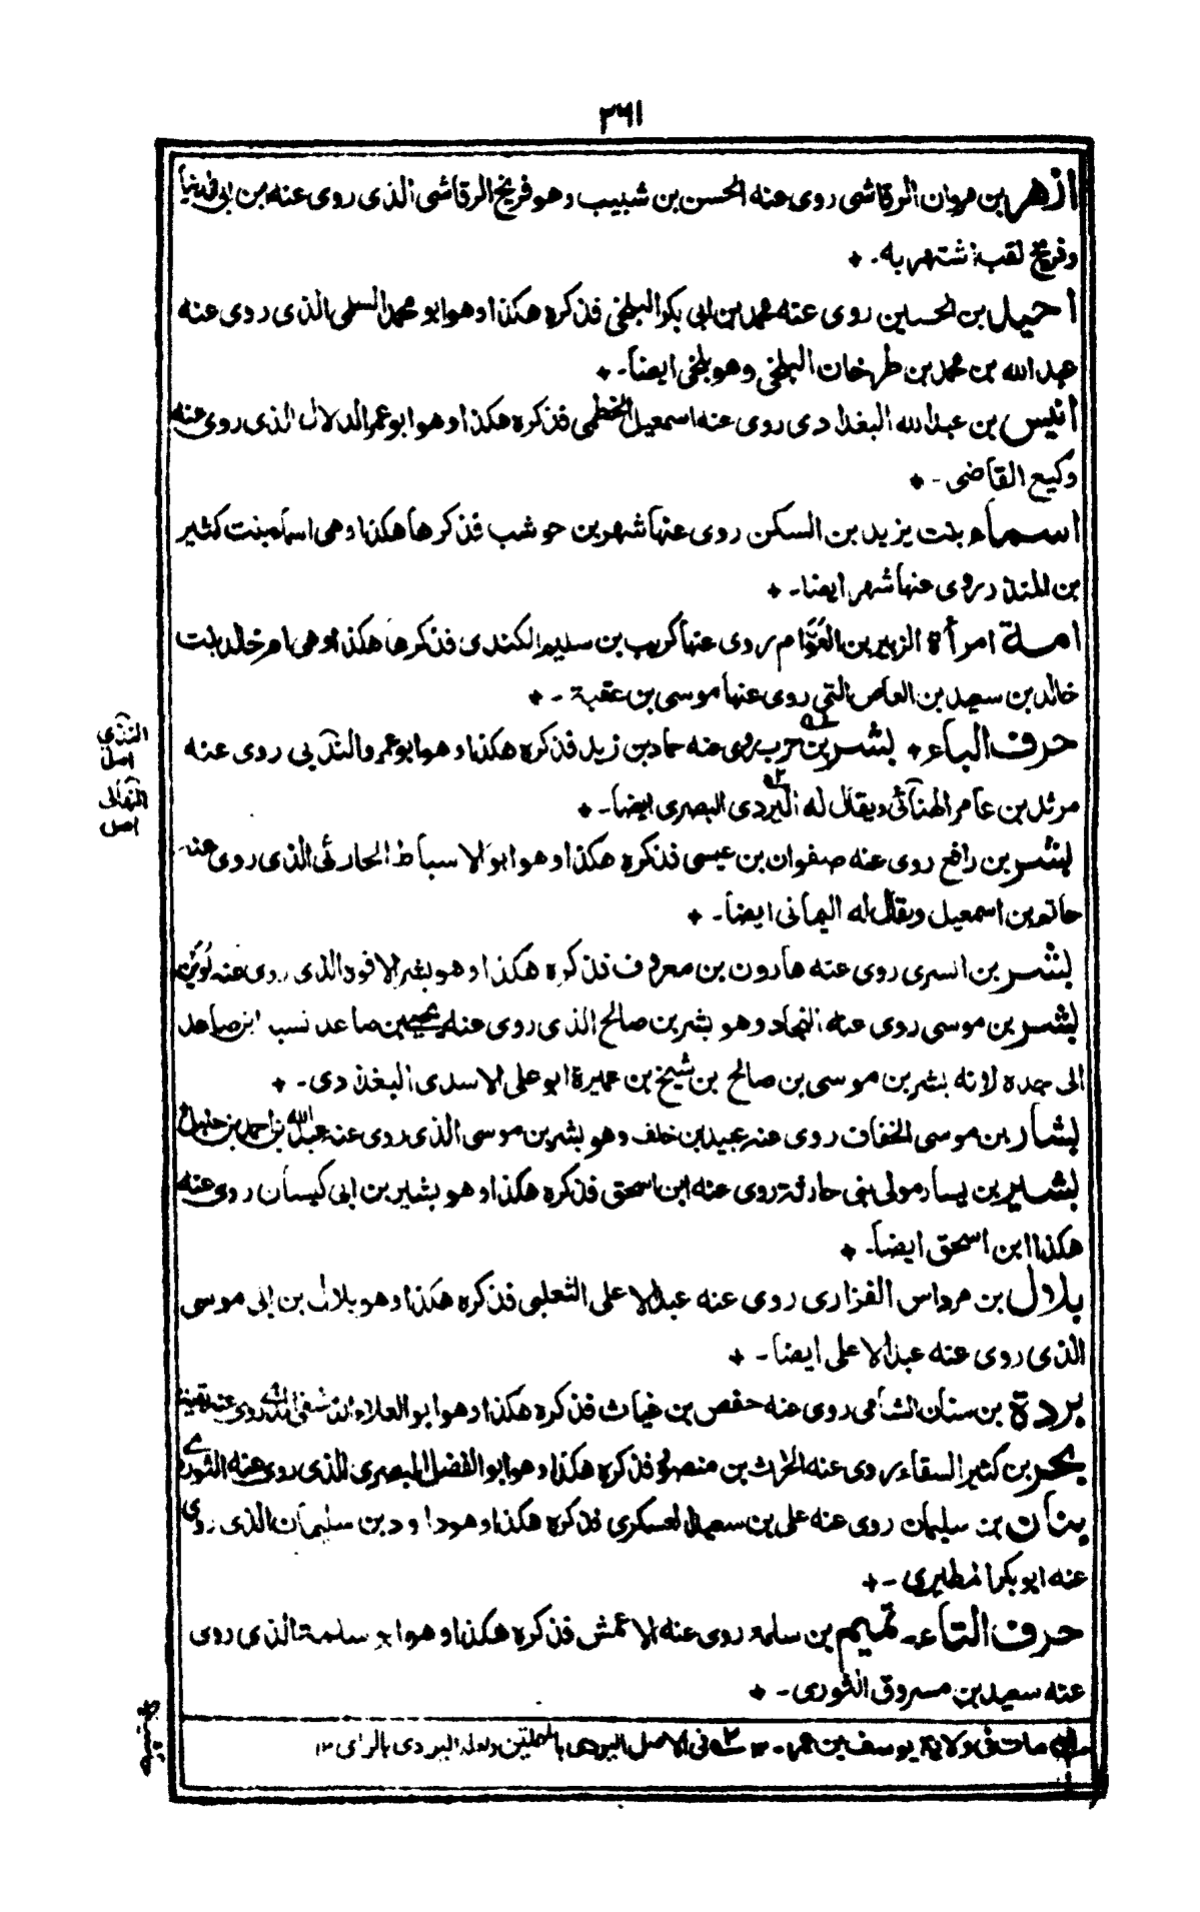 ٣٦١
ازهر بن مروان الرقاشى روى عنه الحسن بن شبيب وهو فريخ الرقاشى الذى روى عنه بن ابى الدنيا
وفريخ لقب اشتهر به۔ ٭
احيل بن الحسين روى عنه محمد بن ابى بكر البلخى فذكره هكذا وهو ابو محمد السلمى الذى روى عنه
عبد الله بن محمد بن طرخان البلخى وهو بلخى ايضاً۔ ٭
انيس بن عبد الله البغدادى روى عنه اسمعيل الخطمى فذكره هكذا وهو ابو عمر الدلال الذى روى عنه
وكيع القاضى۔ ٭
اسماء بنت يزيد بن السكن روى عنها شهر بن حوشب فذكرها هكذا وهى اسماء بنت كثير
بن المنذر روى عنها شهر ايضا۔ ٭
امة امرأة الزبير بن العوّام روى عنها كريب بن سليم الكندى فذكرها هكذا وهى ام خالد بنت
خالد بن سعيد بن العاص التى روى عنها موسى بن عقبة۔ ٭
حرف الباء ٭ بشر بن حرب روى عنه حماد بن زيد فذكره هكذا وهو ابو عمرو الندبى روى عنه
مرثد بن عامر الهنائى ويقال له البردى البصرى ايضا۔ ٭
بشر بن رافع روى عنه صفوان بن عيسى فذكره هكذا وهو ابو الاسباط الحارثى الذى روى عنه
حاتم بن اسمعيل ويقال له اليمانى ايضاً۔ ٭
بشر بن السرى روى عنه هارون بن معروف فذكره هكذا وهو بشر الافوه الذى روى عنه لوين
بشر بن موسى روى عنه النجاد وهو بشر بن صالح الذى روى عنه يحيى بن صاعد نسب ابن صاعد
الى جده لانه بشر بن موسى بن صالح بن شيخ بن عميرة ابو على الاسدى البغدادى۔ ٭
بشار بن موسى الخفاف روى عنه عبيد بن خلف وهو بشر بن موسى الذى روى عنه عبد الله بن احمد بن حنبل
بشير بن يسار مولى بنى حارثة روى عنه ابن اسحق فذكره هكذا وهو بشير بن ابى كيسان روى عنه
هكذا ابن اسحق ايضاً۔ ٭
بلال بن مرداس الفزارى روى عنه عبد الاعلى الثعلبى فذكره هكذا وهو بلال بن ابى موسى
الذى روى عنه عبد الاعلى ايضا۔ ٭
بردة بن سنان الشامى روى عنه حفص بن غياث فذكره هكذا وهو ابو العلاء الدمشقى الذى روى عنه
بحر بن كثير السقاء روى عنه الحرث بن منصور فذكره هكذا وهو ابو الفضل البصرى الذى روى عنه الثورى
بنان بن سليمان روى عنه على بن سعيد العسكرى فذكره هكذا وهو داود بن سليمان الذى روى
عنه ابو بكر المطيرى۔ ٭
حرف التاء۔ تميم بن سلمة روى عنه الاعمش فذكره هكذا وهو ابو سلمة الذى روى
عنه سعيد بن مسروق الثورى۔ ٭
مات فى ولاية يوسف بن عمر۔ ١٢ ٢ وفى الاصل البردى بالمهملتين ولعله البردى بالراى ١٢
الندى
اصل
اصل